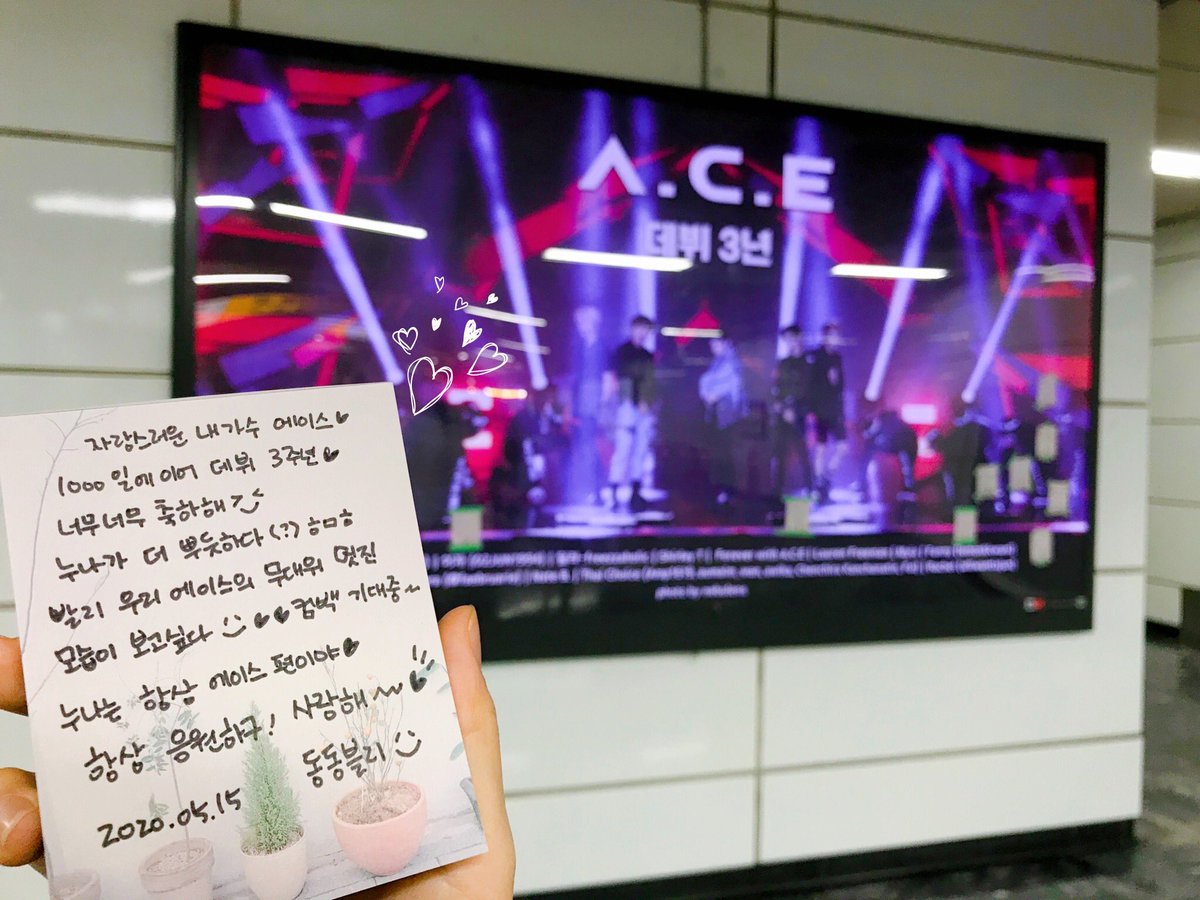 A.C.E
데뷔 3년
자랑스러운 내가수 에이스
1000일에이어 데뷔 3주년
너무너무 축하해
누나가 더 뿌듯하다(?) ㅎㅁㅎ
빨리 우리 에이스의 무대위 멋진
모습이 보고싶다 컴백 기대중~
누나는 항상 에이스 편이야
항상 응원하구! 사랑해~
동동블리
2020.05.15
photo by